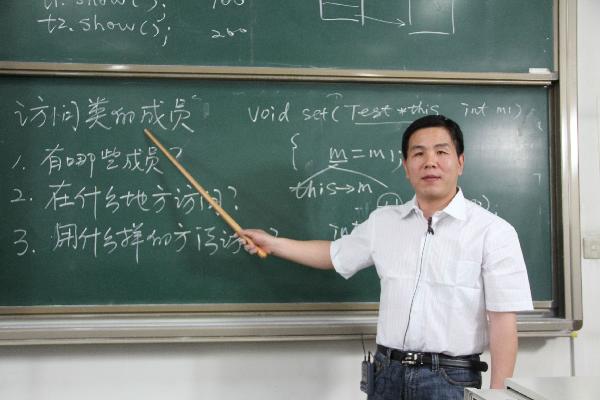 t1.show();
t2.show();
200
访问类的成员
1. 有哪些成员?
2. 在什么地方访问?
3. 用什么样的方法访
void set(Test *this, int m1)
{ m = m1;
this→m
int